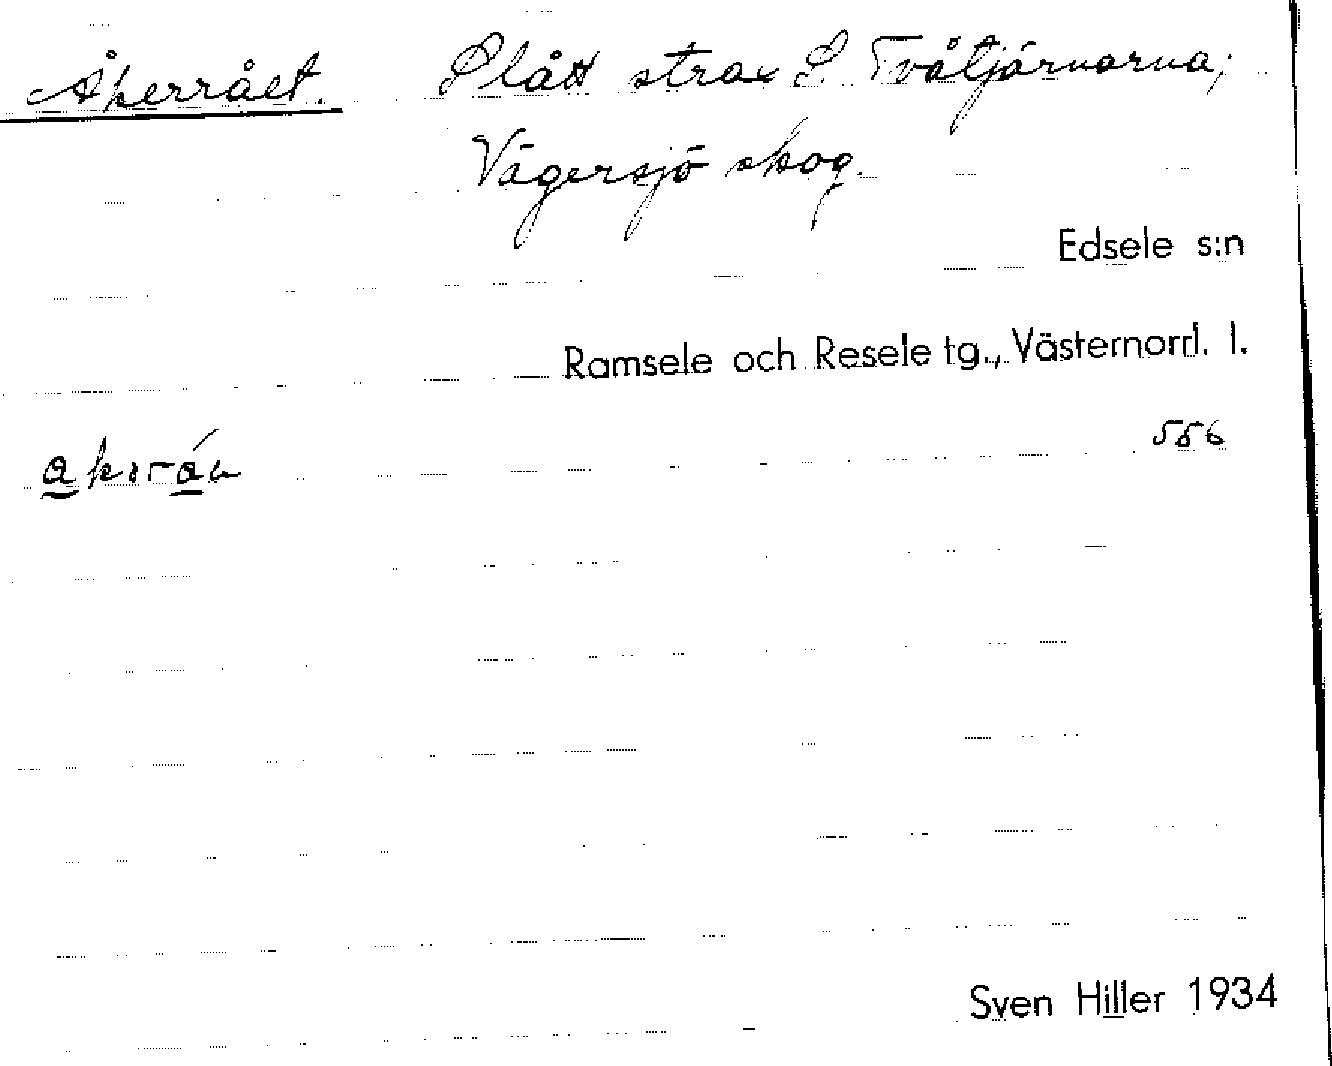 Åkerrået. Slått strax S. Tvåtjärnarna;
Vägersjö skog.
Edsele s:n
Ramsele och Resele tg., Västernorrl. l.
556
Sven Hiller 1934